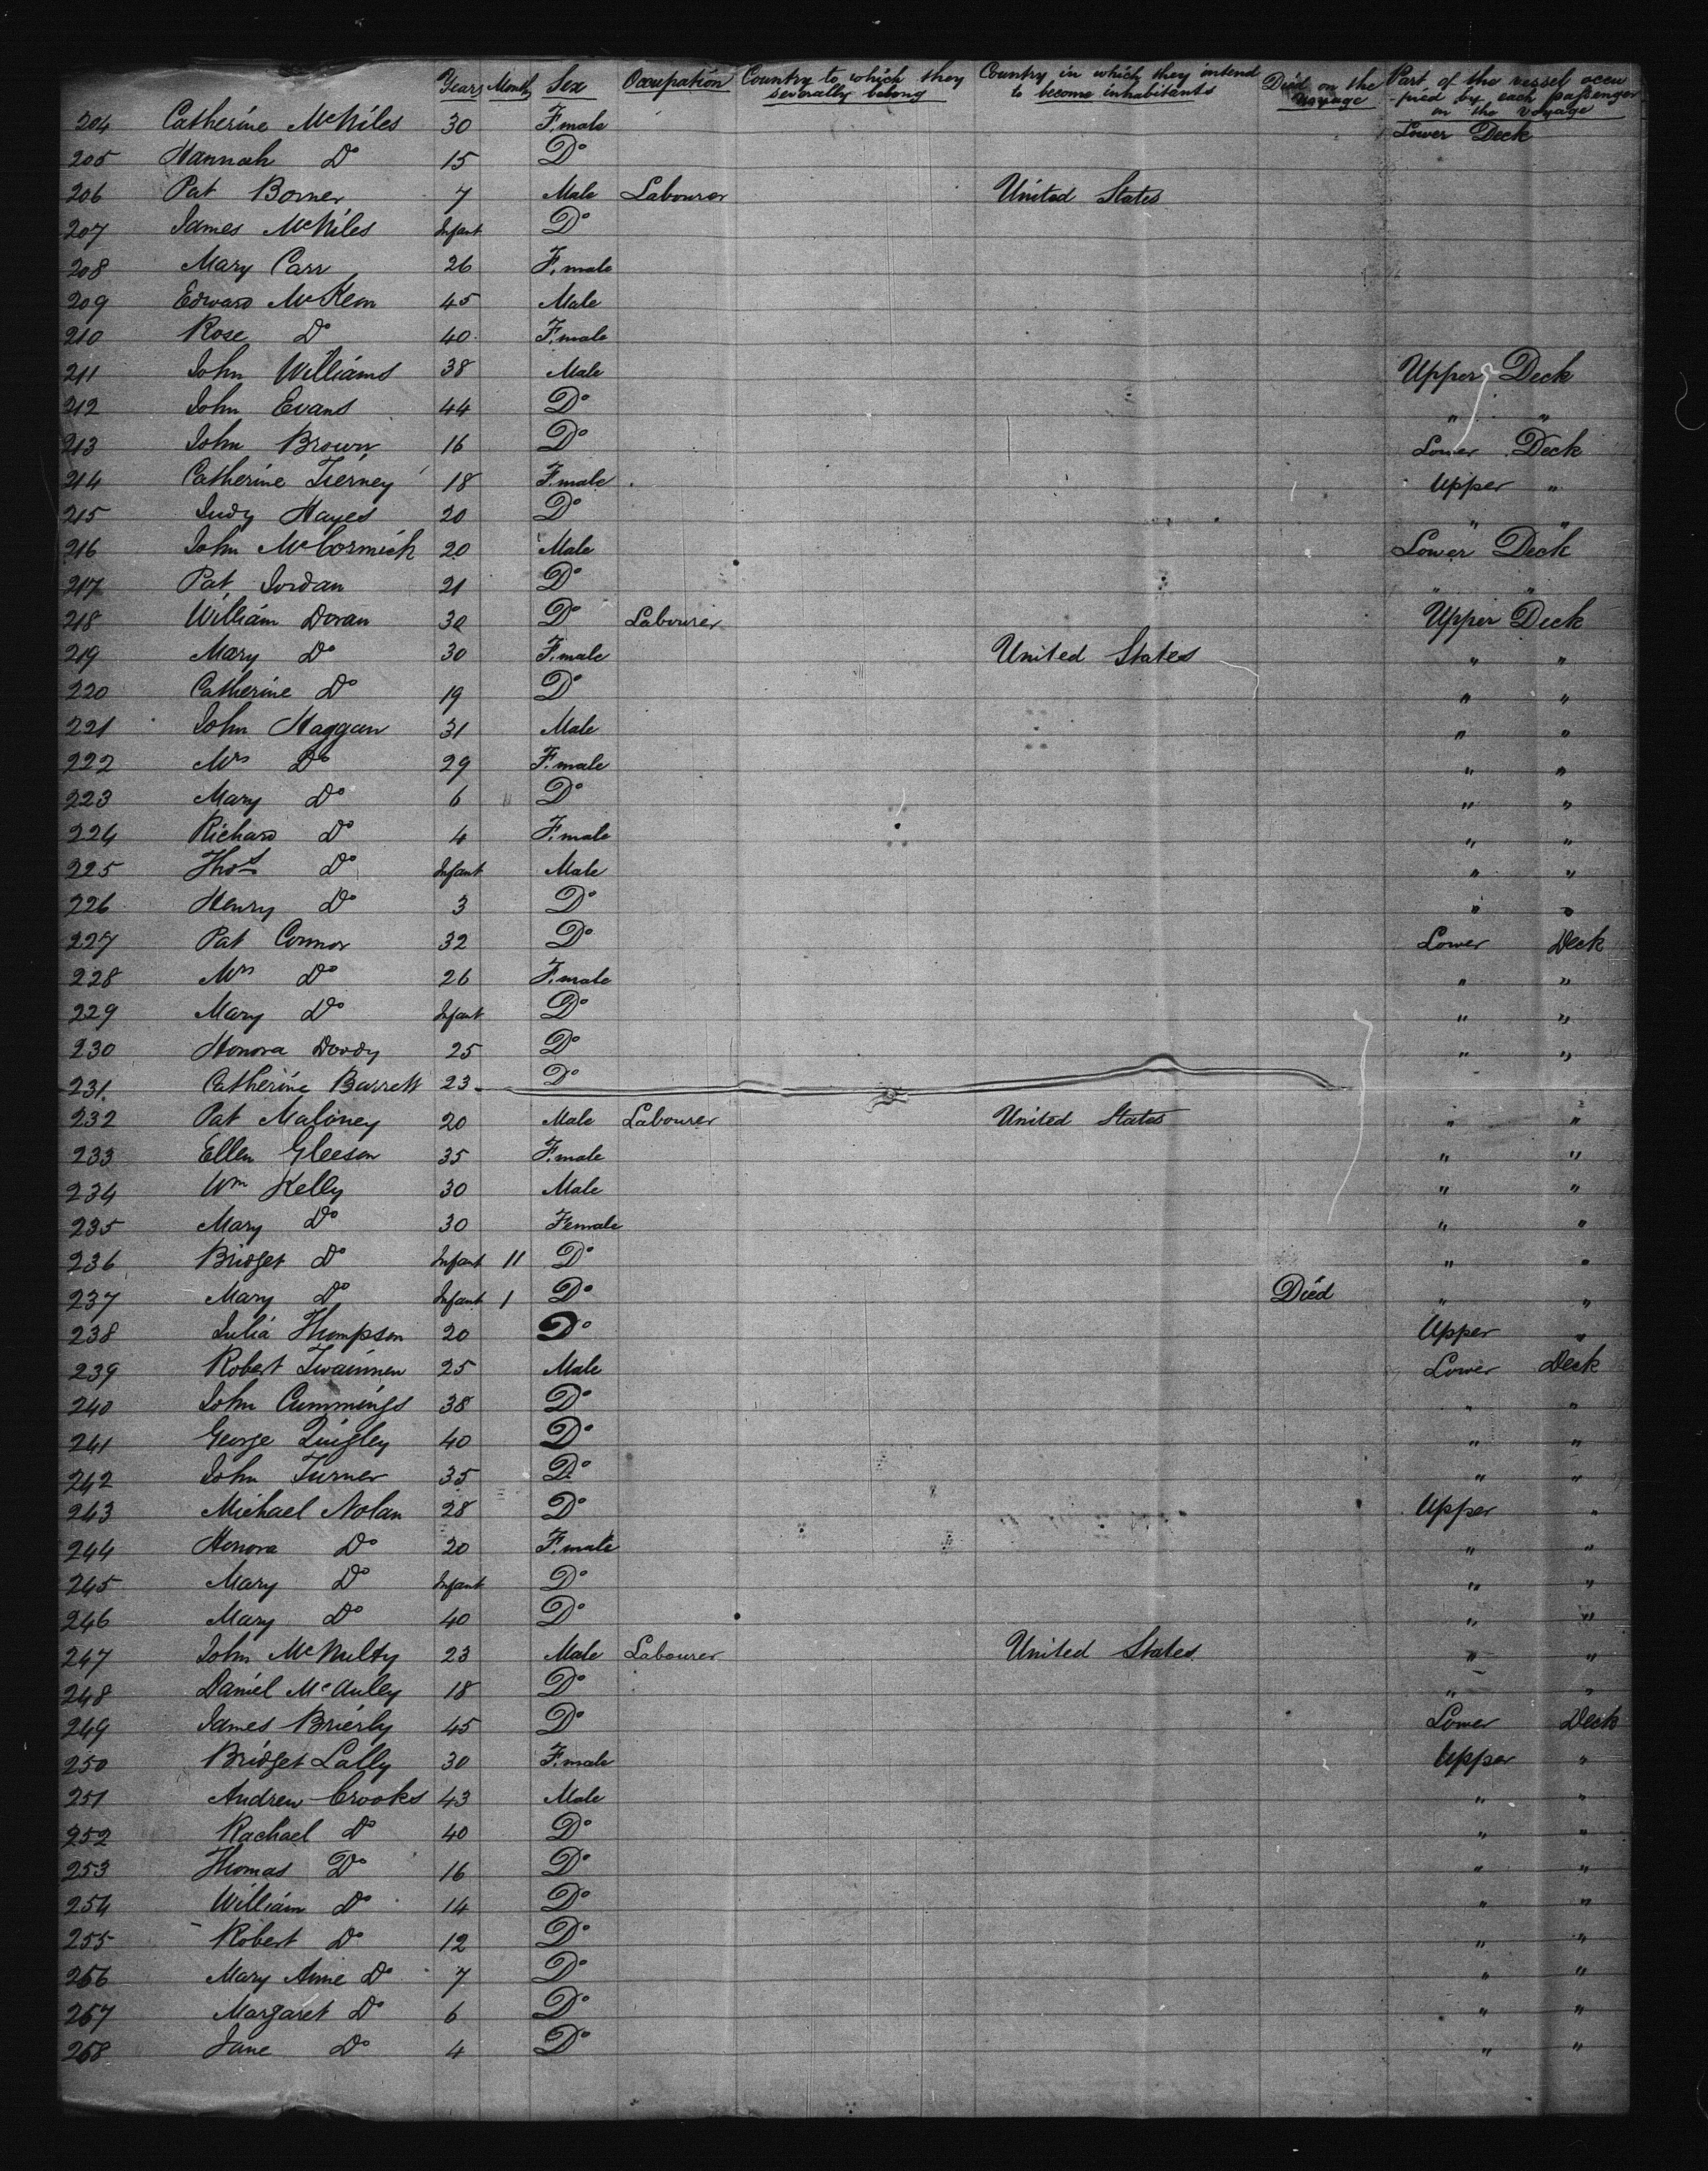 Years Months Sex Occupation Country to which they severally belong Country in which they intend to become inhabitants Died on the voyage Part of the vessel occupied by each passenger in the voyage
204 Catherine McNiles 30 F.male Lower Deck
205 Hannah Do 15 Do
206 Pat Borner 7 Male Labourer United States
207 James McNiles Infant Do
208 Mary Carr 26 F.male
209 Edward McKem 45 Male
210 Rose Do 40 F.male
211 John Williams 38 Male Upper Deck
212 John Evans 44 Do " "
213 John Brown 16 Do Lower Deck
214 Catherine Tierney 18 F.male Upper "
215 Judy Hayes 20 Do " "
216 John McCormick 20 Male Lower Deck
217 Pat Jordan 21 Do " "
218 William Doran 30 Do Labourer Upper Deck
219 Mary Do 30 F.male United States " "
220 Catherine Do 19 Do " "
221 John Haggan 31 Male " "
222 Mrs Do 29 F.male " "
223 Mary Do 6 Do " "
224 Richard Do 4 F.male " "
225 Thos Do Infant Male " "
226 Henry Do 3 Do " "
227 Pat Connor 32 Do Lower Deck
228 Mrs Do 26 F.male " "
229 Mary Do Infant Do " "
230 Honora Doody 25 Do " "
231 Catherine Barrett 23 Do
232 Pat Maloney 20 Male Labourer United States " "
233 Ellen Gleeson 35 F.male " "
234 Wm Kelly 30 Male " "
235 Mary Do 30 Female " "
236 Bridget Do Infant 11 Do " "
237 Mary Do Infant 1 Do Died " "
238 Julia Thompson 20 Do Upper "
239 Robert Twainmen 25 Male Lower Deck
240 John Cummings 38 Do " "
241 George Quigley 40 Do " "
242 John Turner 35 Do " "
243 Michael Nolan 28 Do Upper "
244 Honora Do 20 F.male " "
245 Mary Do Infant Do " "
246 Mary Do 40 Do " "
247 John McNulty 23 Male Labourer United States " "
248 Daniel McAuley 18 Do " "
249 James Brierly 45 Do Lower Deck
250 Bridget Lally 30 F.male Upper "
251 Andrew Crooks 43 Male " "
252 Rachael Do 40 Do " "
253 Thomas Do 16 Do " "
254 William Do 14 Do " "
255 Robert Do 12 Do " "
256 Mary Anne Do 7 Do " "
257 Margaret Do 6 Do " "
258 Jane Do 4 Do " "